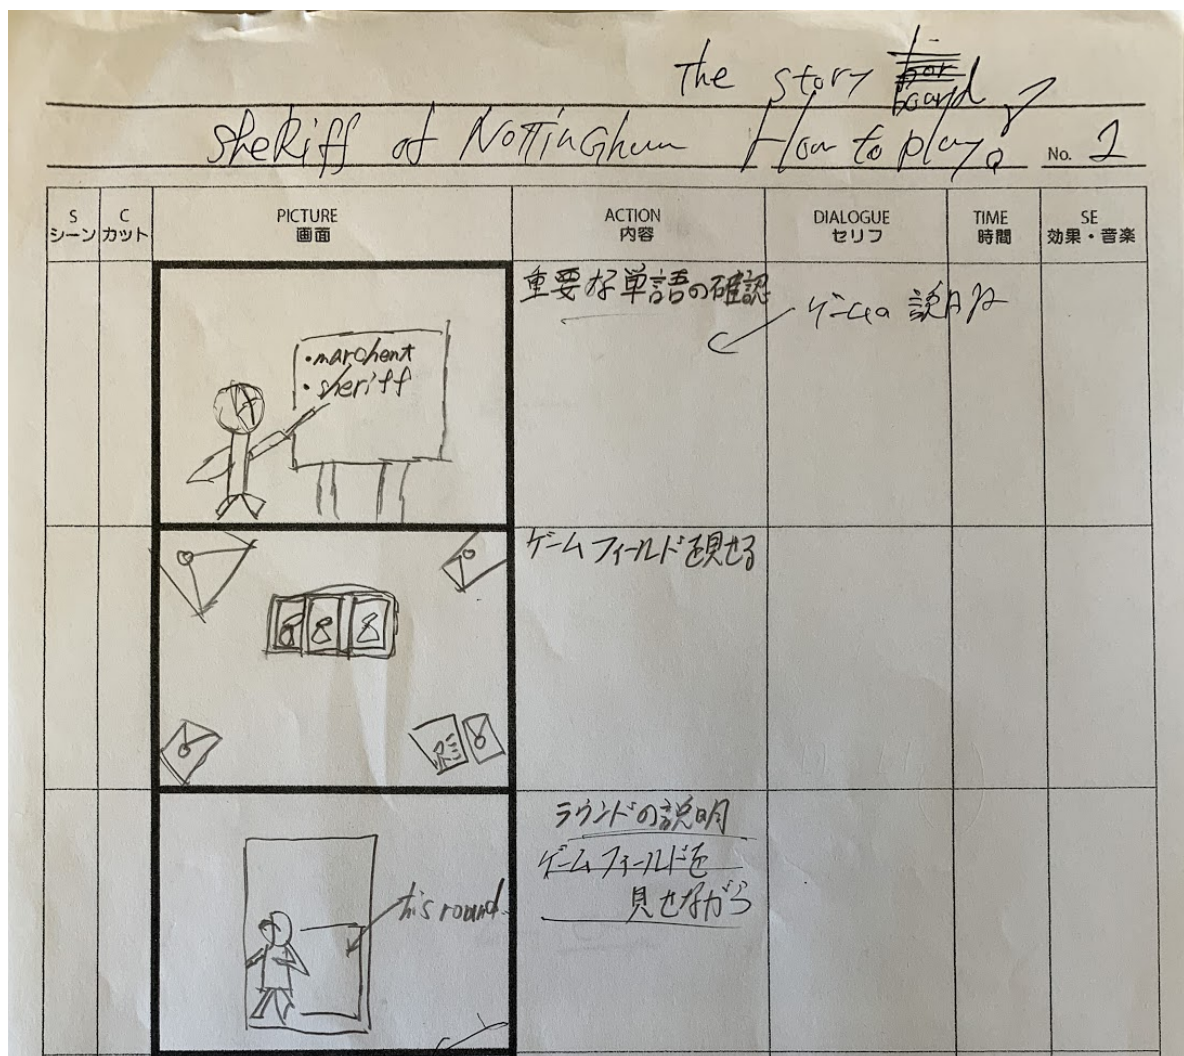 The story board
Sheriff of Nottingham How to play? No. 1
S シーン
C カット
PICTURE 画面
ACTION 内容
DIALOGUE セリフ
TIME 時間
SE 効果・音楽
・marchent
・sheriff
重要な単語の確認
ゲームの説明
ゲームフィールドを見せる
his round
ラウンドの説明
ゲームフィールドを
見せながら